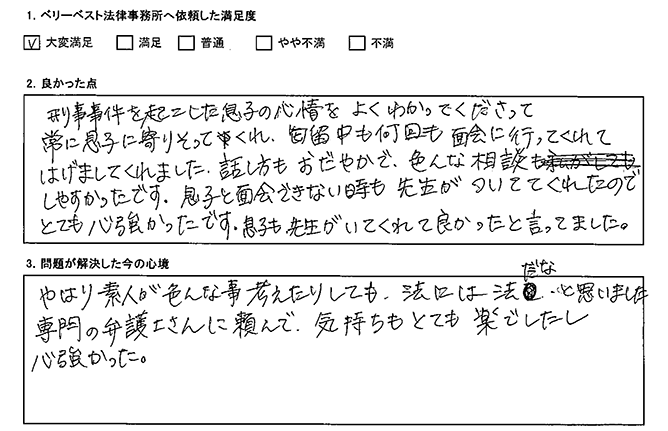 1. ベリーベスト法律事務所へ依頼した満足度
☑ 大変満足 □ 満足 □ 普通 □ やや不満 □ 不満
2. 良かった点
刑事事件を起こした息子の心情を よくわかってくださって
常に息子に寄りそってくれ、勾留中も何回も面会に行ってくれて
はげましてくれました。話し方もおだやかで、色んな相談も
しやすかったです。息子と面会できない時も先生がついててくれたので
とても心強かったです。息子も先生がいてくれて良かったと言ってました。
3. 問題が解決した今の心境
だな
やはり素人が色んな事考えたりしても、法は法 ‥と思いました
専門の弁護士さんに頼んで、気持ちもとても楽でしたし
心強かった。